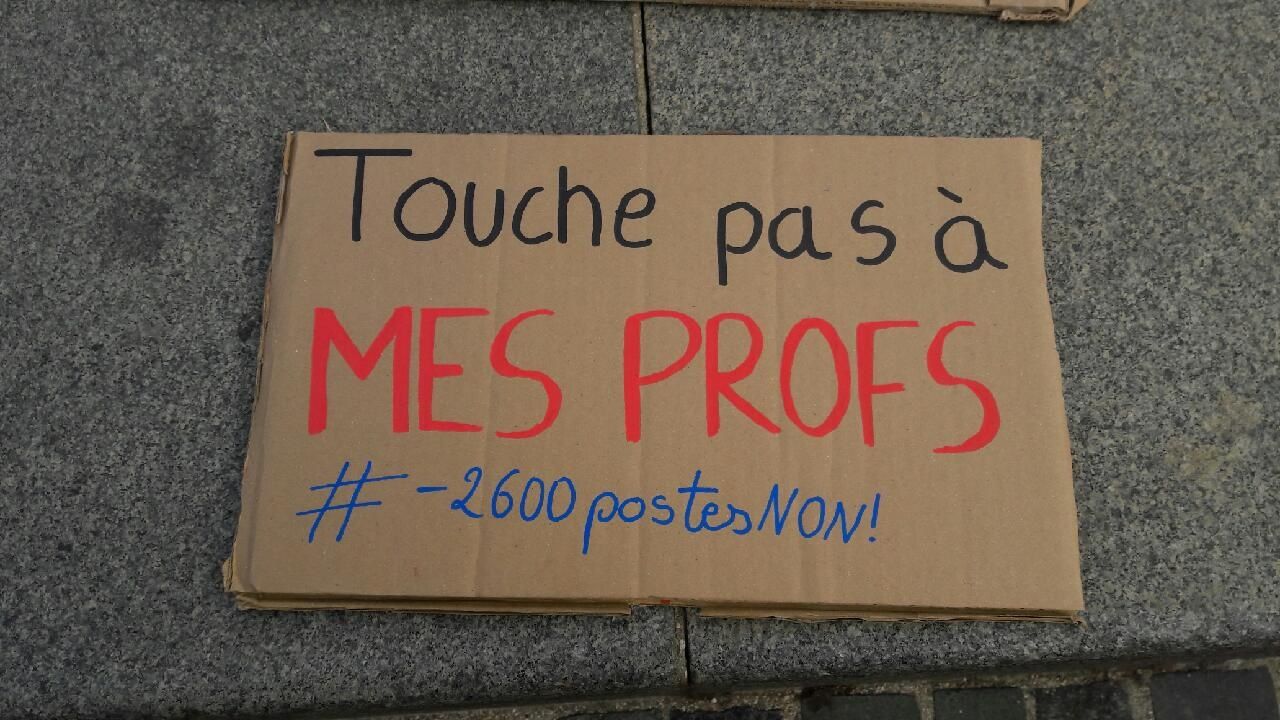 Touche pas à
MES PROFS
#-2600postesNON!